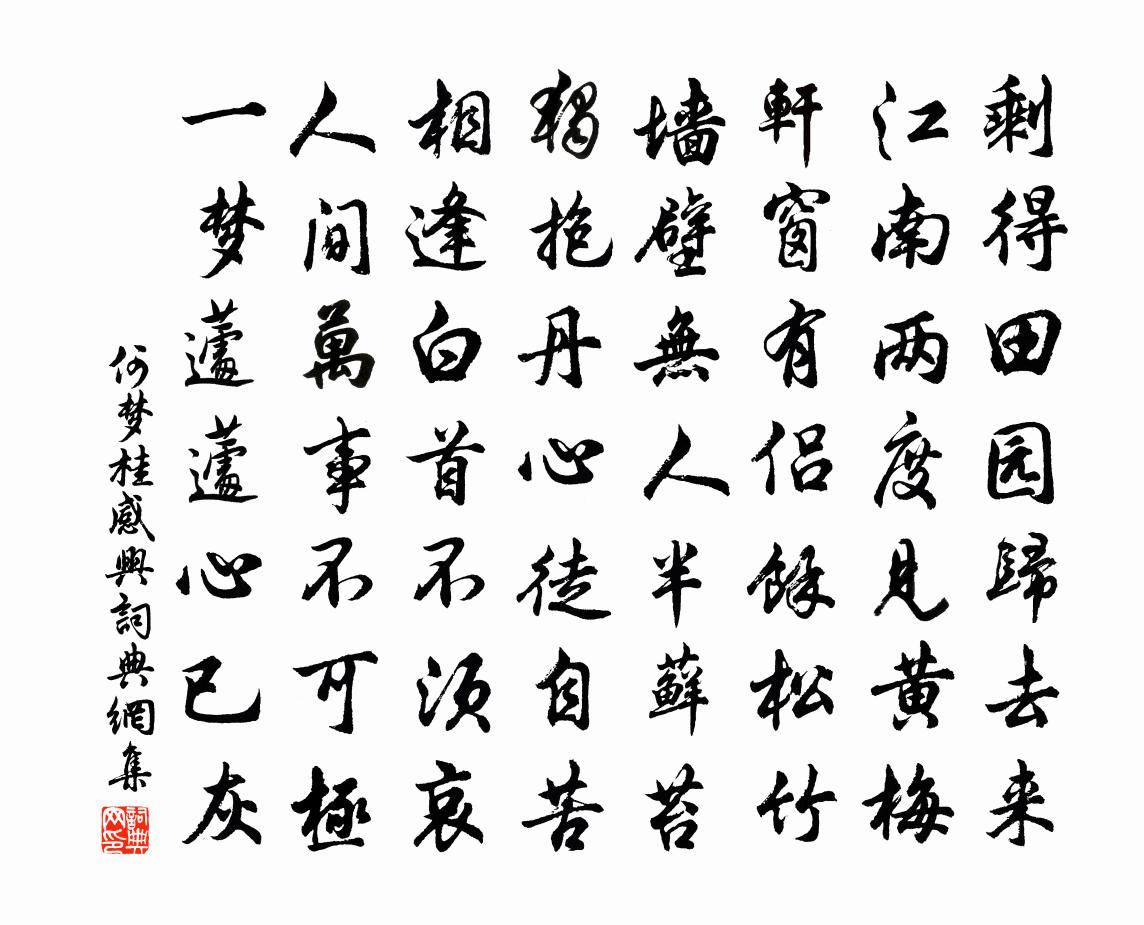 剩得田园歸去来
江南两度見黄梅
軒窗有侣餘松竹
墙壁無人半蘚苔
独抱丹心徒自苦
相逢白首不须哀
人间萬事不可極
一梦蘧蘧心已灰
何梦桂感興詞典網集
詞典网印